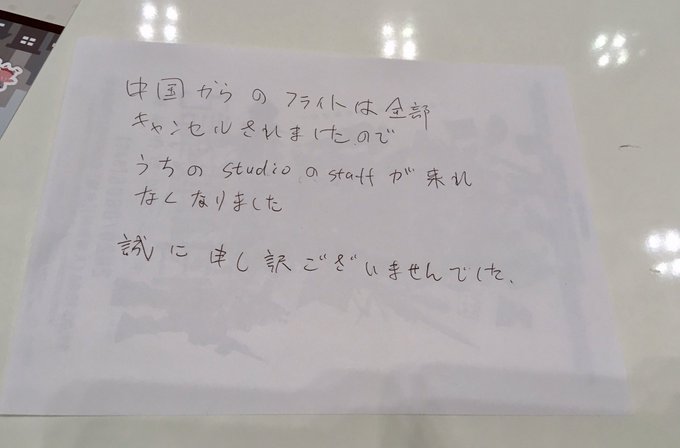 中国からのフライトは全部
キャンセルされましたので
うちのstudioのstaffが来れ
なくなりました
誠に申し訳ございませんでした.